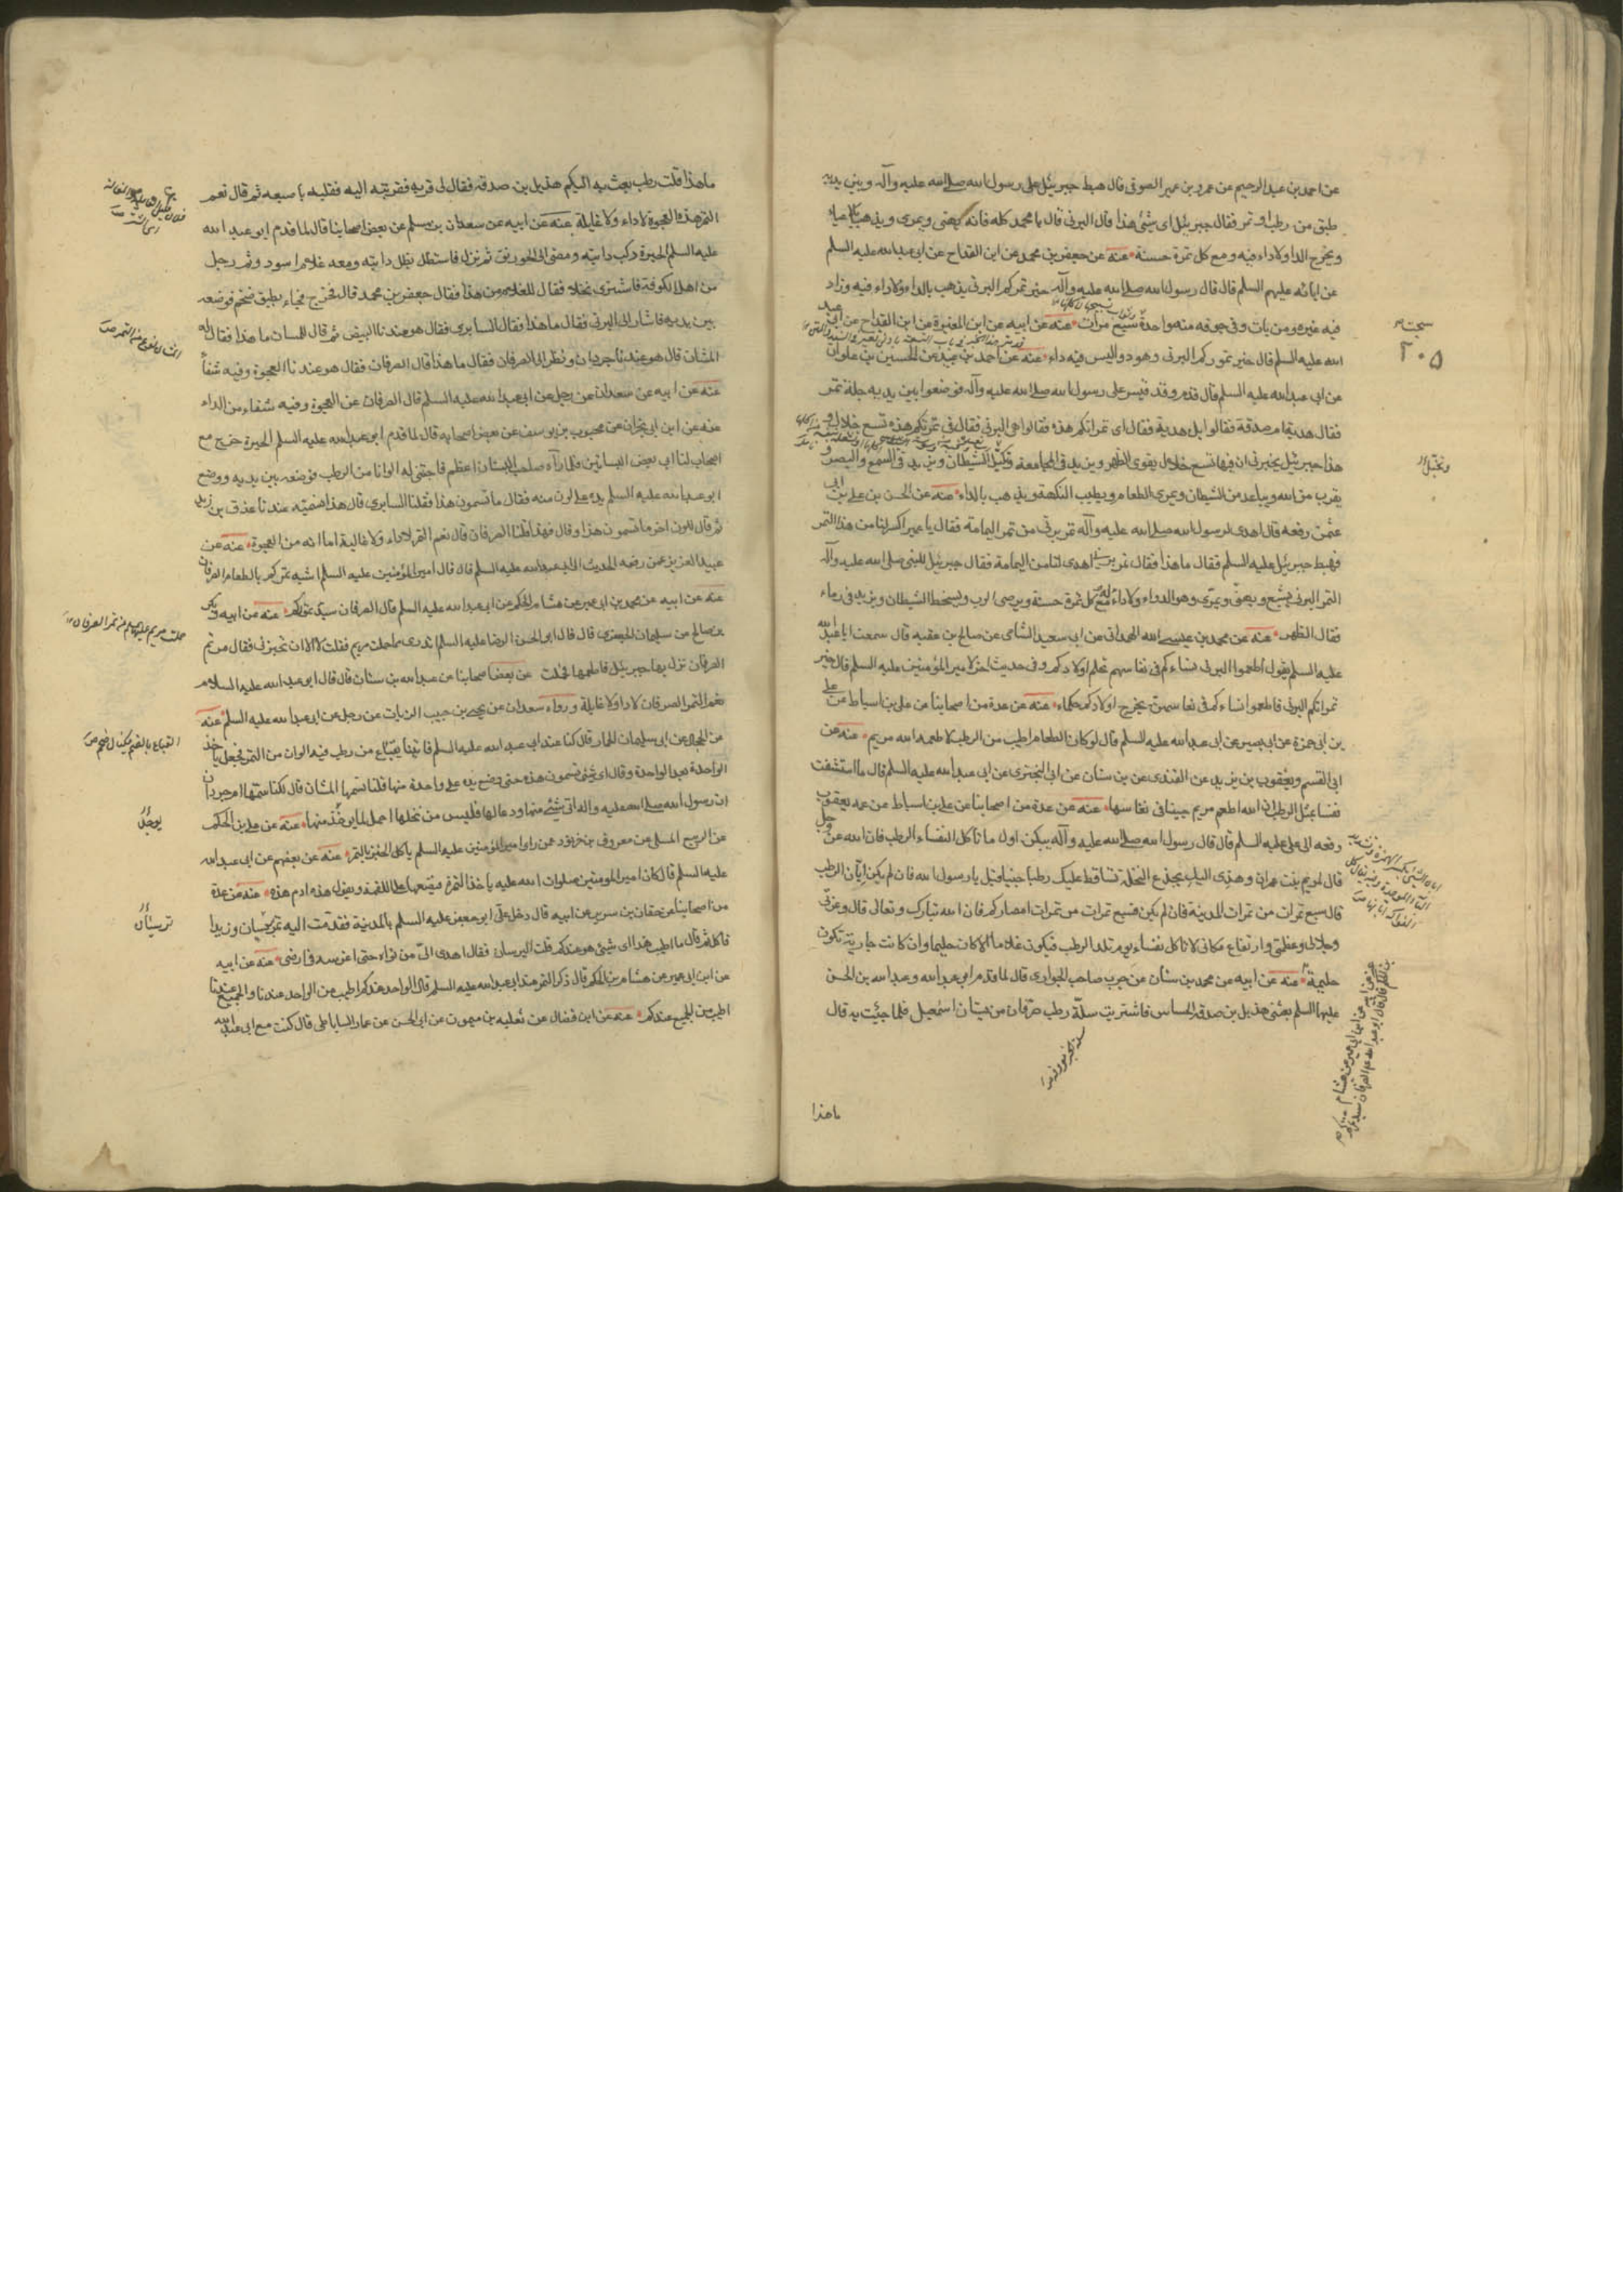 عن احمد بن عبد الرحيم عن عمرو بن عمير الصوفى قال هبط جبرئيل على رسول الله صلى الله عليه وآله وبين يديه
طبق من رطب او تمر فقال جبرئيل اى شئ هذا قال البرنى قال يا محمد كله فانه يهنى ويمرى ويذهب بالاعياء
ويخرج الداء ولا داء فيه ومع كل تمرة حسنة عنه عن جعفر بن محمد عن ابن القداح عن ابى عبد الله عليه السلم
عن ابائه عليهم السلم قال قال رسول الله صلى الله عليه وآله خير تمركم البرنى يذهب بالداء ولا داء فيه وزاد
فيه غيره ومن بات وفى جوفه منه واحدة سبع مرات عنه عن ابيه عن ابن المغيرة عن ابن القداح عن ابى عبد
الله عليه السلم قال خير تموركم البرنى وهو دواء ليس فيه داء عنه عن احمد بن عبيد عن الحسين بن علوان
عن ابى عبد الله عليه السلم قال قدم وفد قيس على رسول الله صلى الله عليه وآله فوضعوا بين يديه جلة تمر
فقال هدية ام صدقة فقالوا بل هدية فقال اى تمراتكم هذه فقالوا هى البرنى فقال فى تمرتكم هذه تسع خلال و
هذا جبرئيل يخبرنى ان فيها تسع خلال يقوى الظهر ويزيد فى المجامعة ويزيد فى السمع والبصر و
يقرب من الله ويباعد من الشيطان ويمرى الطعام ويطيب النكهة ويذهب بالداء عنه عن الحسن بن على بن ابى
عثمن رفعه قال اهدى لرسول الله صلى الله عليه وآله تمر برنى من تمر اليمامة فقال يا عمير اكثر لنا من هذا التمر
فهبط جبرئيل عليه السلم فقال ما هذا فقال تمر برنى اهدى لنا من اليمامة فقال جبرئيل للنبى صلى الله عليه وآله
التمر البرنى يشبع ويهنى ويمرى وهو الدواء ولا داء له مع كل تمرة حسنة ويرضى الرب ويسخط الشيطان ويزيد فى ماء
فقال الظهر عنه عن محمد بن عيسى الله الهمدانى عن ابى سعيد الشامى عن صالح بن عقبه قال سمعت ابا عبد الله
عليه السلم يقول اطعموا البرنى نساءكم فى نفاسهم تحلم اولادكم وفى حديث اخر لامير المؤمنين عليه السلم قال خير
تمراتكم البرنى فاطعموا نساءكم فى نفاسهن يخرج اولادكم حكماء عنه عن عدة من اصحابنا عن على بن اسباط عن على
بن ابى حمزة عن ابى بصير عن ابى عبد الله عليه السلم قال لو كان الطعام اطيب من الرطب لاطعمه الله مريم عنه عن
ابى القسم ويعقوب بن يزيد عن القندى عن بن سنان عن ابى البخترى عن ابى عبد الله عليه السلم قال ما استشفت
نفساء بمثل الرطب ان الله اطعم مريم جنيا فى نفاسها عنه عن عدة من اصحابنا عن على بن اسباط عن عمه يعقوب
رفعه الى على عليه السلم قال قال رسول الله صلى الله عليه وآله ليكن اول ما تاكل النفساء الرطب فان الله عز وجل
قال لمريم بنت عمران وهزى اليك بجذع النخلة تساقط عليك رطبا جنيا قيل يا رسول الله فان لم يكن ابان الرطب
قال سبع تمرات من تمرات المدينة فان لم يكن فسبع تمرات من تمرات امصاركم فان الله تبارك وتعالى قال وعزتى
وجلالى وعظمتى وارتفاع مكانى لا تاكل نفساء يوم تلد الرطب فيكون غلاما الا كان حليما وان كانت جارية تكون
حليمة عنه عن ابيه عن محمد بن سنان عن حرب صاحب الجوارى قال لما قدم ابى عبد الله وعبد الله بن الحسن
عليها السلم بعثنى هذيل بن صدقه الحساس فاشتريت سلة رطب صرفان من بستان اسمعيل فلما جئت به قال
ما هذا
سجستانى
٢٠٥
ما هذا قلت رطب بعث به اليكم هذيل بن صدقة فقال لى قربه فقربته اليه فقلبه باصبعه ثم قال نعم
التمر هذه العجوة لا داء ولا غايلة عنه عن ابيه عن سعدان بن مسلم عن بعض اصحابنا قال لما قدم ابو عبد الله
عليه السلم الحيرة ركب دابته ومضى الى الخورنق ثم نزل فاستظل بظل دابته ومعه غلام اسود وثم رجل
من اهل الكوفة فاشترى نخلا فقال للغلام من هذا فقال جعفر بن محمد قال فخرج فجاء بطبق ضخم فوضعه
بين يديه فاشار الى البرنى فقال ما هذا فقال السابرى فقال هو عندنا البيض ثم قال للمشان ما هذا فقال له
المشان قال هو عندنا ام جرذان ونظر الى الصرفان فقال ما هذا قال الصرفان فقال هو عندنا العجوة وفيه شفاء
عنه عن ابيه عن سعدان عن رجل عن ابى عبد الله عليه السلم قال الصرفان من العجوة وفيه شفاء من الداء
عنه عن ابن ابى نجران عن محبوب بن يوسف عن بعض اصحابه قال لما قدم ابو عبد الله عليه السلم الحيرة خرج مع
اصحاب لنا الى بعض البساتين فلما رآه صاحب البستان اعظمه فاجتنى له الوانا من الرطب فوضعه بين يديه ووضع
ابو عبد الله عليه السلم يده على لون منه فقال ما تسمون هذا فقلنا السابرى قال هذا نسميه عندنا عذق بن زيد
ثم قال للون اخر ما تسمون هذا وقال فهذا قلنا الصرفان قال نعم التمر لا داء ولا غائلة اما انه من العجوة عنه عن
عبد العزيز عمن رفعه الحديث الى ابى عبد الله عليه السلم قال قال امير المؤمنين عليه السلم اشبه تموركم بالطعام الصرفان
عنه عن ابيه عن محمد بن ابى عمير عن هشام بن الحكم عن ابى عبد الله عليه السلم قال الصرفان سيد تموركم عنه عن ابيه وبكر
بن صالح عن سليمان الجعفرى قال قال ابى الحسن الرضا عليه السلم تدرى مما حملت مريم فقلت لا الا ان تخبرنى فقال من تمر
الصرفان نزل بها جبرئيل فاطعمها فحملت عن بعض اصحابنا عن عبد الله بن سنان قال قال ابو عبد الله عليه السلام
نعم التمر الصرفان لا داء ولا غايلة ورواه سعدان عن يحيى بن حبيب الزيات عن رجل عن ابى عبد الله عليه السلم عنه
عن الحجال عن ابى سليمان الحمار قال كنا عند ابى عبد الله عليه السلم فاتينا بقباع من رطب فيه الوان من التمر فجعل ياخذ
الواحدة بعد الواحدة وقال اى شئ تسمون هذه حتى وضع يده على واحدة منها قلنا نسميها المشان قال لكنا نسميها ام جرذان
ان رسول الله صلى الله عليه واله اتى بشئ منها ودعا لها فليس من نخلها احمل لما يوخذ منها عنه عن على بن الحكم
عن الربيع المسلى عن معروف بن خربوذ عمن راى امير المؤمنين عليه السلم ياكل الخبز بالتمر عنه عن بعضهم عن ابى عبد الله
عليه السلم قال كان امير المومنين صلوات الله عليه ياخذ التمرة فيضعها على اللقمة ويقول هذه ادم هذه عنه عن عدة
من اصحابنا عن حنان بن سدير عن ابيه قال دخل على ابو جعفر عليه السلم بالمدينة فقدمت اليه تمر نرسيان وزبدا
فاكل ثم قال ما اطيب هذا اى شئ هو عندكم قلت النرسان فقال اهدى الى من نواه حتى اغرسه فى ارضى عنه عن ابيه
عن ابن ابى عمير عن هشام بن الحكم قال ذكر التمر عند ابى عبد الله عليه السلم قال الواحد عندكم اطيب من الواحد عندنا والجميع عندنا
اطيب من الجميع عندكم عنه عن ابن فضال عن ثعلبه بن ميمون عن ابى الحسن عن عمار الساباطى قال كنت مع ابى عبد الله
حملت مريم عليها السلم من تمر الصرفان
القباع بالضم مكيال ضخم ص
يوخذ
نرسيان